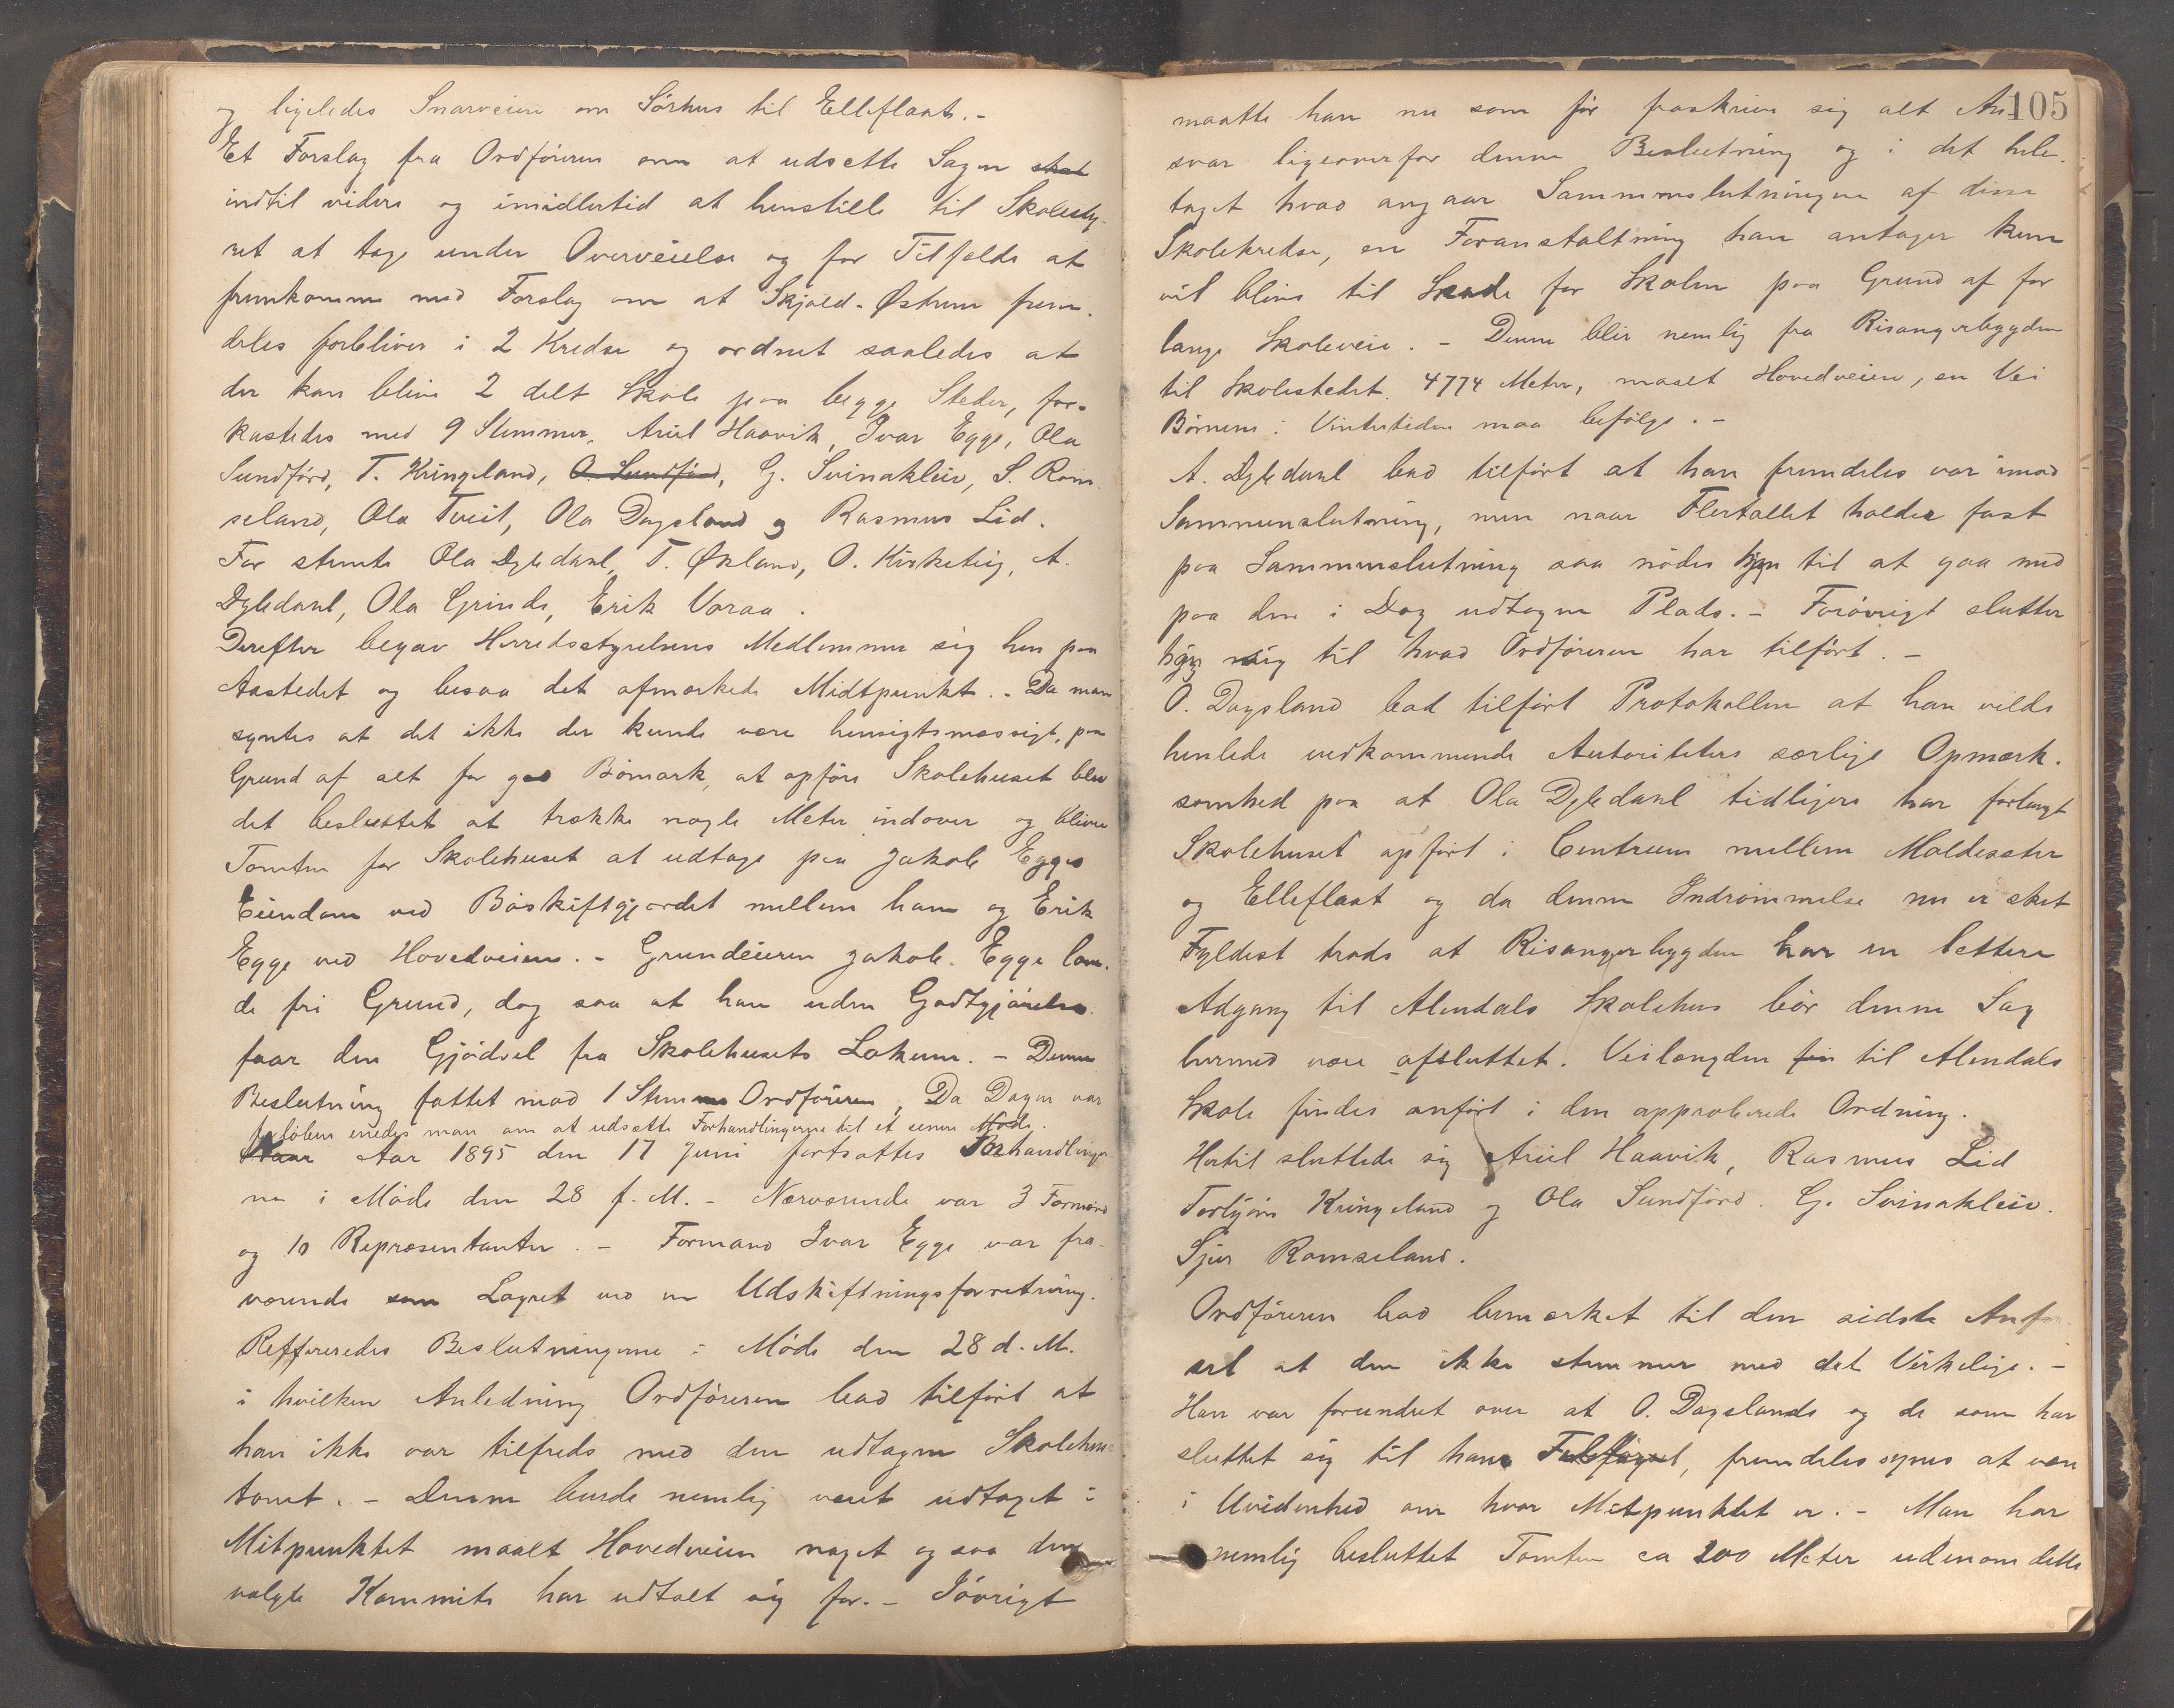 og ligeledes Snarveien om Sørhus til Elleflaat.-
Et Forslag fra Ordføreren om at udsette Sagen skal
indtil videre og imidlertid at henstille til Skolesty-
ret at tage under Overveielse og for Tilfælde at
fremkomme med Forslag om at Skjold-Østrem frem-
deles forbliver i 2 Kredse og ordnet saaledes at
der kan blive 2 delt Skole paa begge Steder, for-
kastedes med 9 Stemmer, Ariel Haavik, Ivar Egge, Ola
Sundførd, T. Kringeland, O. Sundførd, G. Svinakleiv, S. Rom
seland, Ola Tveit, Ola Dagsland og Rasmus Lid.
For stemte Ola Dybdahl, T. Økland, O. Kirketeig, A.
Dybdahl, Ola Grinde, Erik Voraa.
Derefter begav Herredsstyrelsens Medlemmer sig hen paa
Aastedet og besaa det afmerkede Midtpunkt.- Da man
syntes at det ikke der kunde være hensigtsmæssigt, paa
Grund af alt for god Bømark, at opføre Skolehuset blev
det besluttet at trække nogle Meter indover og bliver
Tomten for Skolehuset at udtage paa Jakob Egges
Eiendom ved Bøskiftgjerdet mellem ham og Erik
Egge ved Hovedveien.- Grundeieren Jakob Egge lov-
de fri Grund, dog saa at han uden Godtgjørelse
faar den Gjødsel fra Skolehusets Lokum.- Denne
Beslutning fattet mod 1 Stemme Ordføreren, Da Dagen var
forløben enedes man om at udsætte Forhandlingerne til et senere Møde.
Aar 1895 den 17 Juni fortsattes Forhandlinger
ne i Møde den 28 f. M.- Nærværende var 3 Formænd
og 10 Repræsentanter.- Formand Ivar Egge var fra-
værende som Lagret ved en Udskiftningsforretning.
Reffereredes Beslutningerne i Møde den 28 d. M.
i hvilken Anledning Ordføreren bad tilført at
han ikke var tilfreds med den udtagne Skolehus-
tomt.- Denne burde nemlig været udtaget i
Mitpunktet maalt Hovedveien noget ogsaa den
valgte Kommite har udtalt sig for.- Iøvrigt
105
maatte han nu som før fraskrive sig alt An
svar ligeoverfor denne Beslutning og i det hele-
taget hvad angaar Sammenslutningen af disse
Skolekredse, en Foranstaltning han antager kun
vil blive til Skade for Skolen paa Grund af for
lange Skoleveie.- Denne blir nemlig fra Risangerbygden
til Skolestedet 4774 Meter, maalt Hovedveien, en Vei
Børnene i Vintertiden maa befølge.-
A. Dybdahl bad tilført at han fremdeles var imod
Sammenslutning, men naar Flertallet holder fast
paa Sammenslutning saa nødes han til at gaa med
paa den i Dag udtagne Plads.- Forøvrigt slutter
han sig til hvad Ordføreren har tilført.-
O. Dagsland bad tilført Protokollen at han vilde
henlede vedkommende Autoriteters særlige Opmærk-
somhed paa at Ola Dybdahl tidligere har forlangt
Skolehuset opført i Centrum mellem Moldesæter
og Elleflaat og da denne Indrømmelse nu er sket
Fyldest trods at Risangerbygden har en lettere
Adgang til Alendals Skolehus bør denne Sag
hermed være afsluttet. Veilængden fin til Alendals
Skole findes anført i den approberede Ordning.
Hertil sluttede sig Ariel Haavik, Rasmus Lid
Torbjørn Kringeland og Ola Sundførd. G. Svinakleiv.
Sjur Romseland.
Ordføreren bad bemerket til den sidste Anfør
sel at den ikke stemmer med det Virkelige.-
Han var forundret over at O. Dagslands og de som har
sluttet sig til hans, fremdeles synes at være
i Uvidenhed om hvor Mitpunktet er.- Man har
nemlig besluttet Tomten ca 200 Meter udenom dette